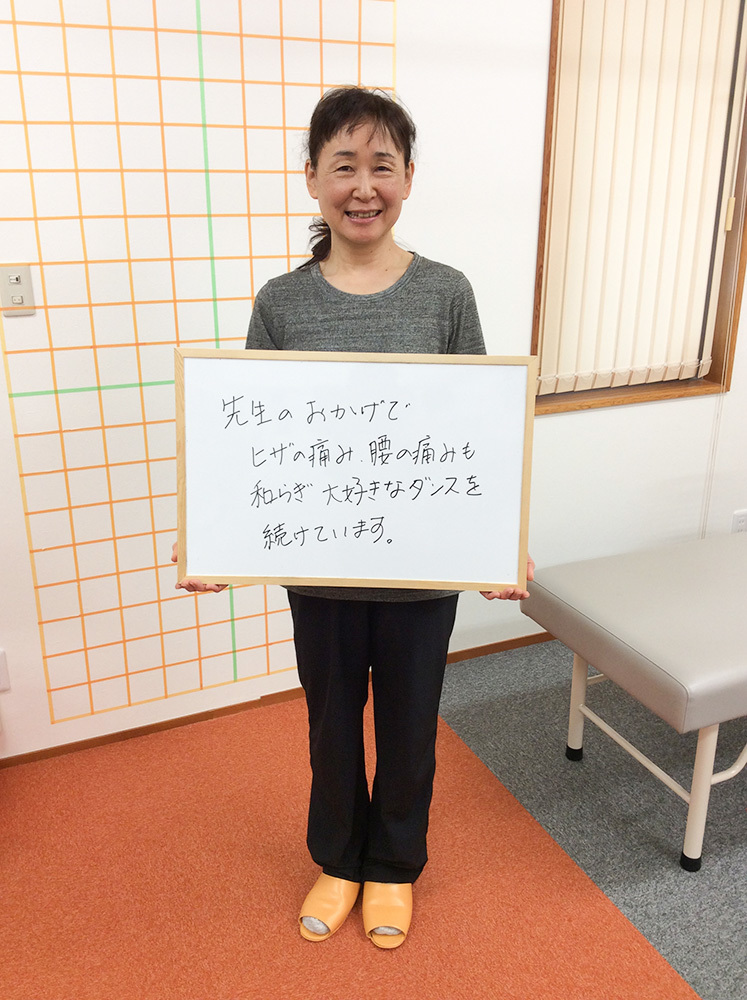 先生のおかげで
ヒザの痛み、腰の痛みも
和らぎ 大好きなダンスを
続けています。